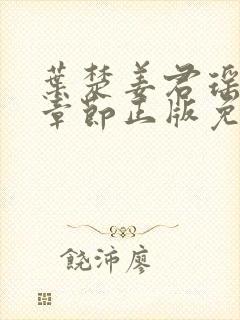 葉楚姜君瑶
章節正版免
饒沛廖